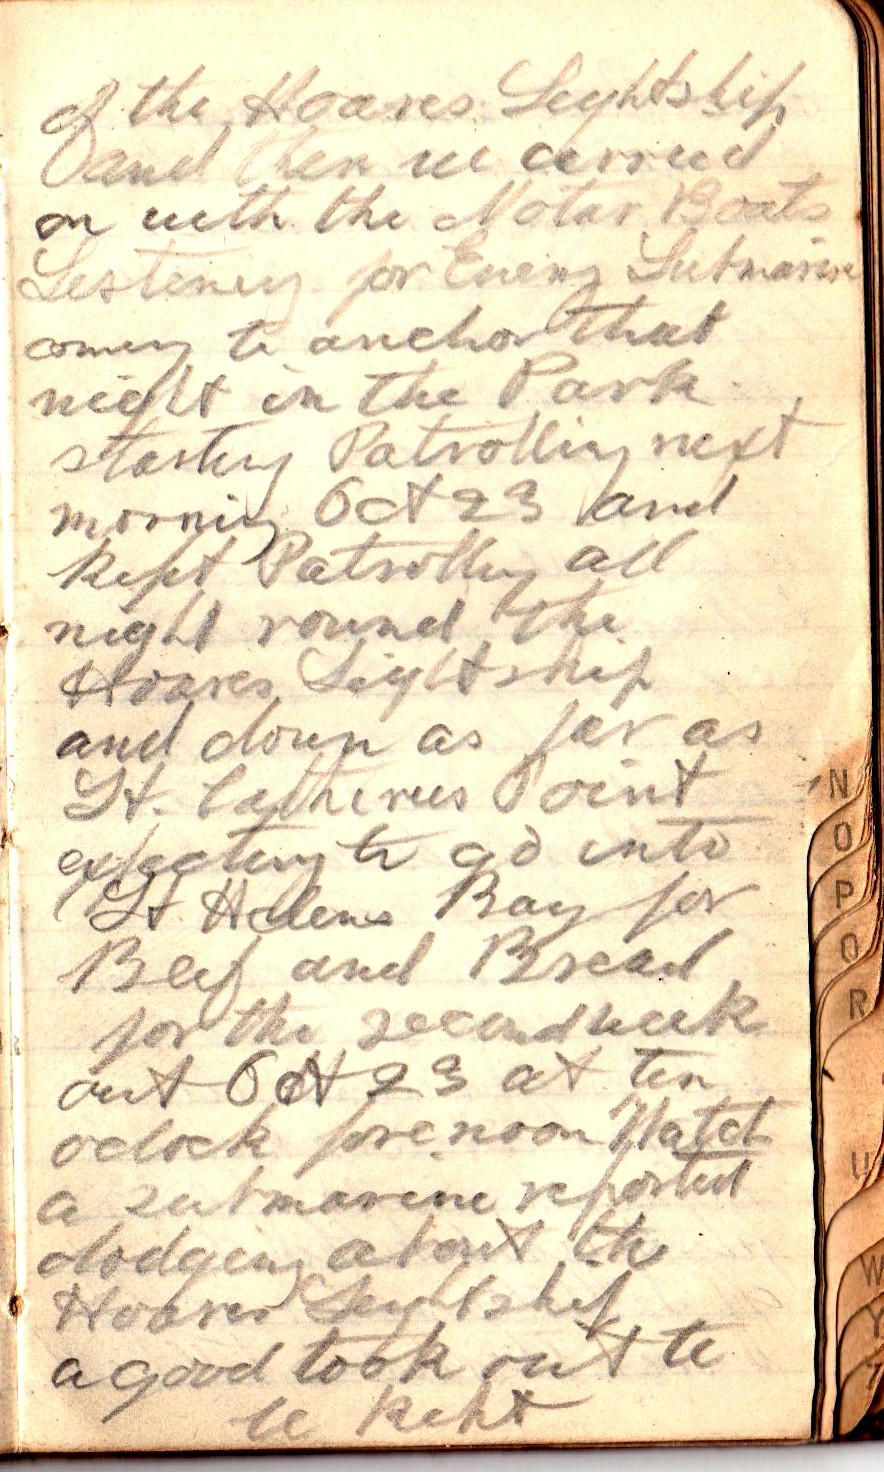 of the Hoares Leightship
and then we carried
on with the Motar Boats
Listening for Eneny Submarine
coming to anchor that
night in the Park
starting Patrolling next
morning Oct 23 and
kept Patrolling all
night round the
Hoares Lightship
and down as far as
St. Catherines Point
expecting to go into
St Helens Bay for
Beef and Bread
for the second week
out Oct 23 at ten
oclock forenoon Watch
a submarine reported
dodging about the
Hoares Leightship
a good look out to
be keht
N
O
P
Q
R
U
W
Y